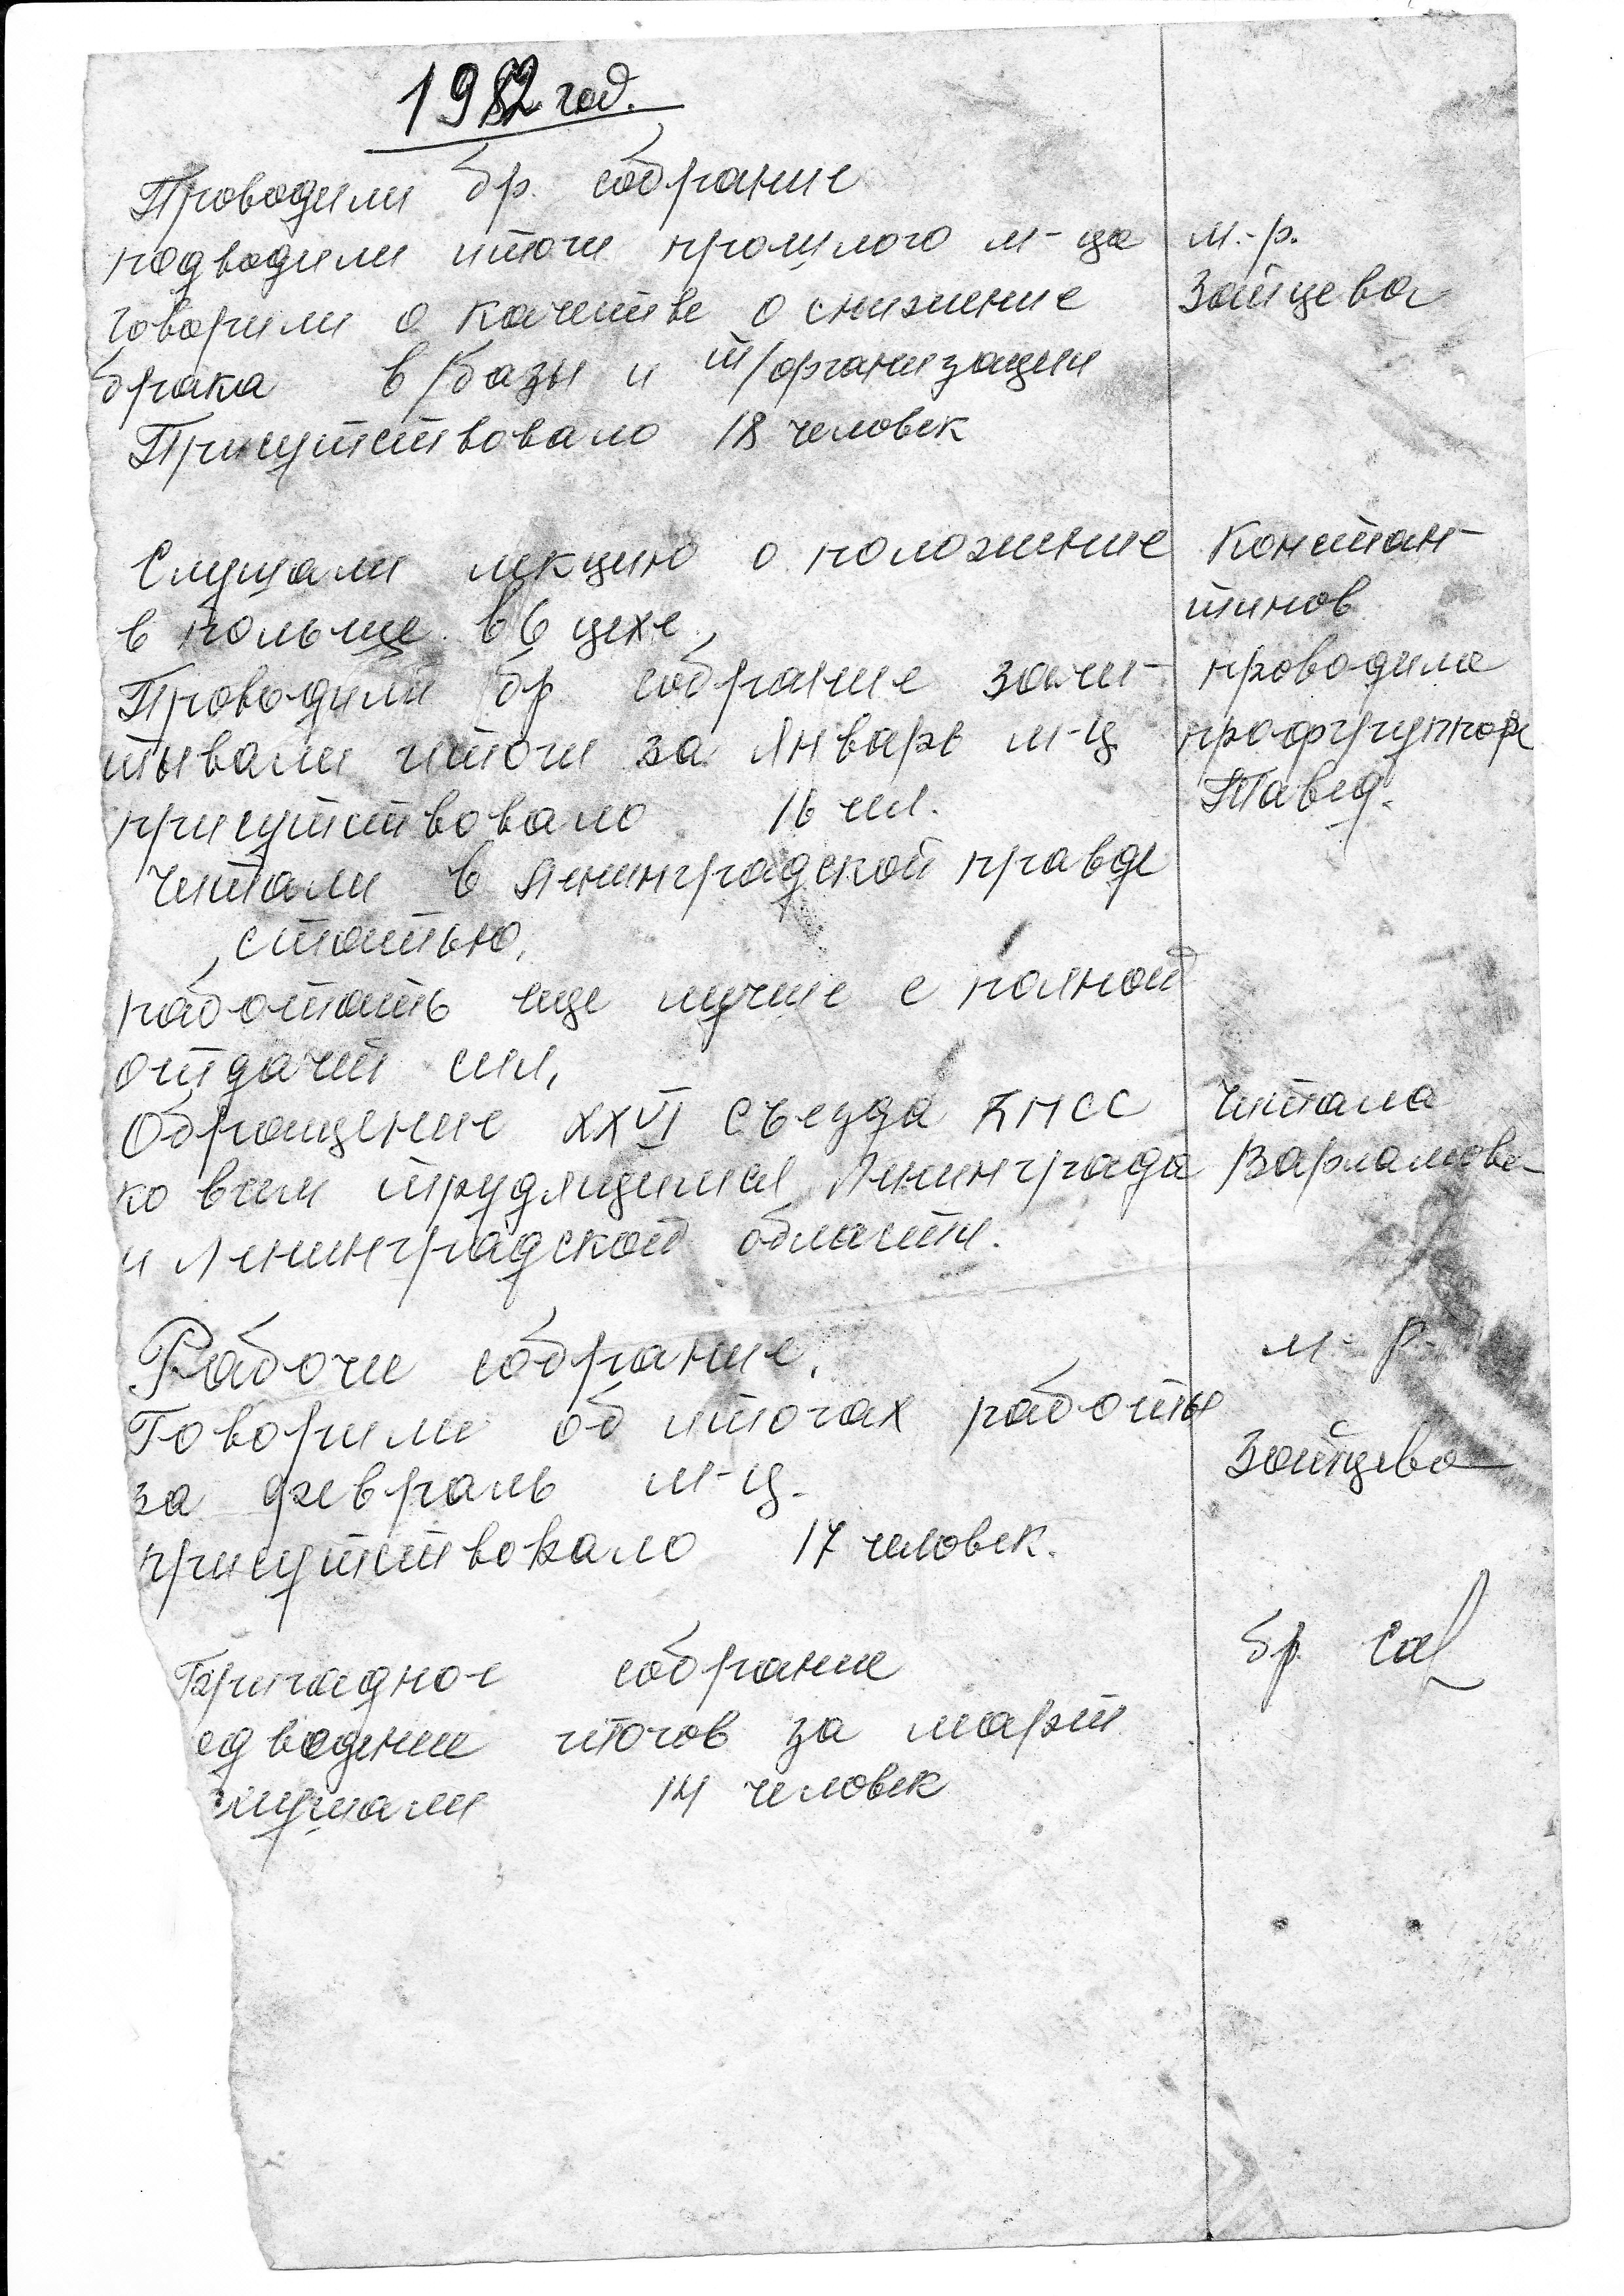 1982 год.
Проводили бр. собрание
подводили итоги прошлого м-ца
м.-р.
говорили о качестве о снижение
Зайцева
брака в/базы и т/организации
Присутствовало 18 человек
Слушали лекцию о положение
Констан-
в польше в 6 цехе,
тинов
Проводили бр собрание зачи-
проводила
тывали итоги за Январь м-ц
профгрупорг
присутствовало 16 чел.
Читали в Ленинградской правде
статью,
работать еще лучше с полной
отдачей сил,
Обращение XXVI съезда КПСС
Читала
ко всем трудящимся Ленинграда
Варламова
и Ленинградской области.
Рабочие собрание,
м-р-
Говорили об итогах работы
за февраль м-ц.
Зайцева
присутствовало 17 человек.
бр.
Бригадное собрание
едведение итогов за март
слушали 14 человек